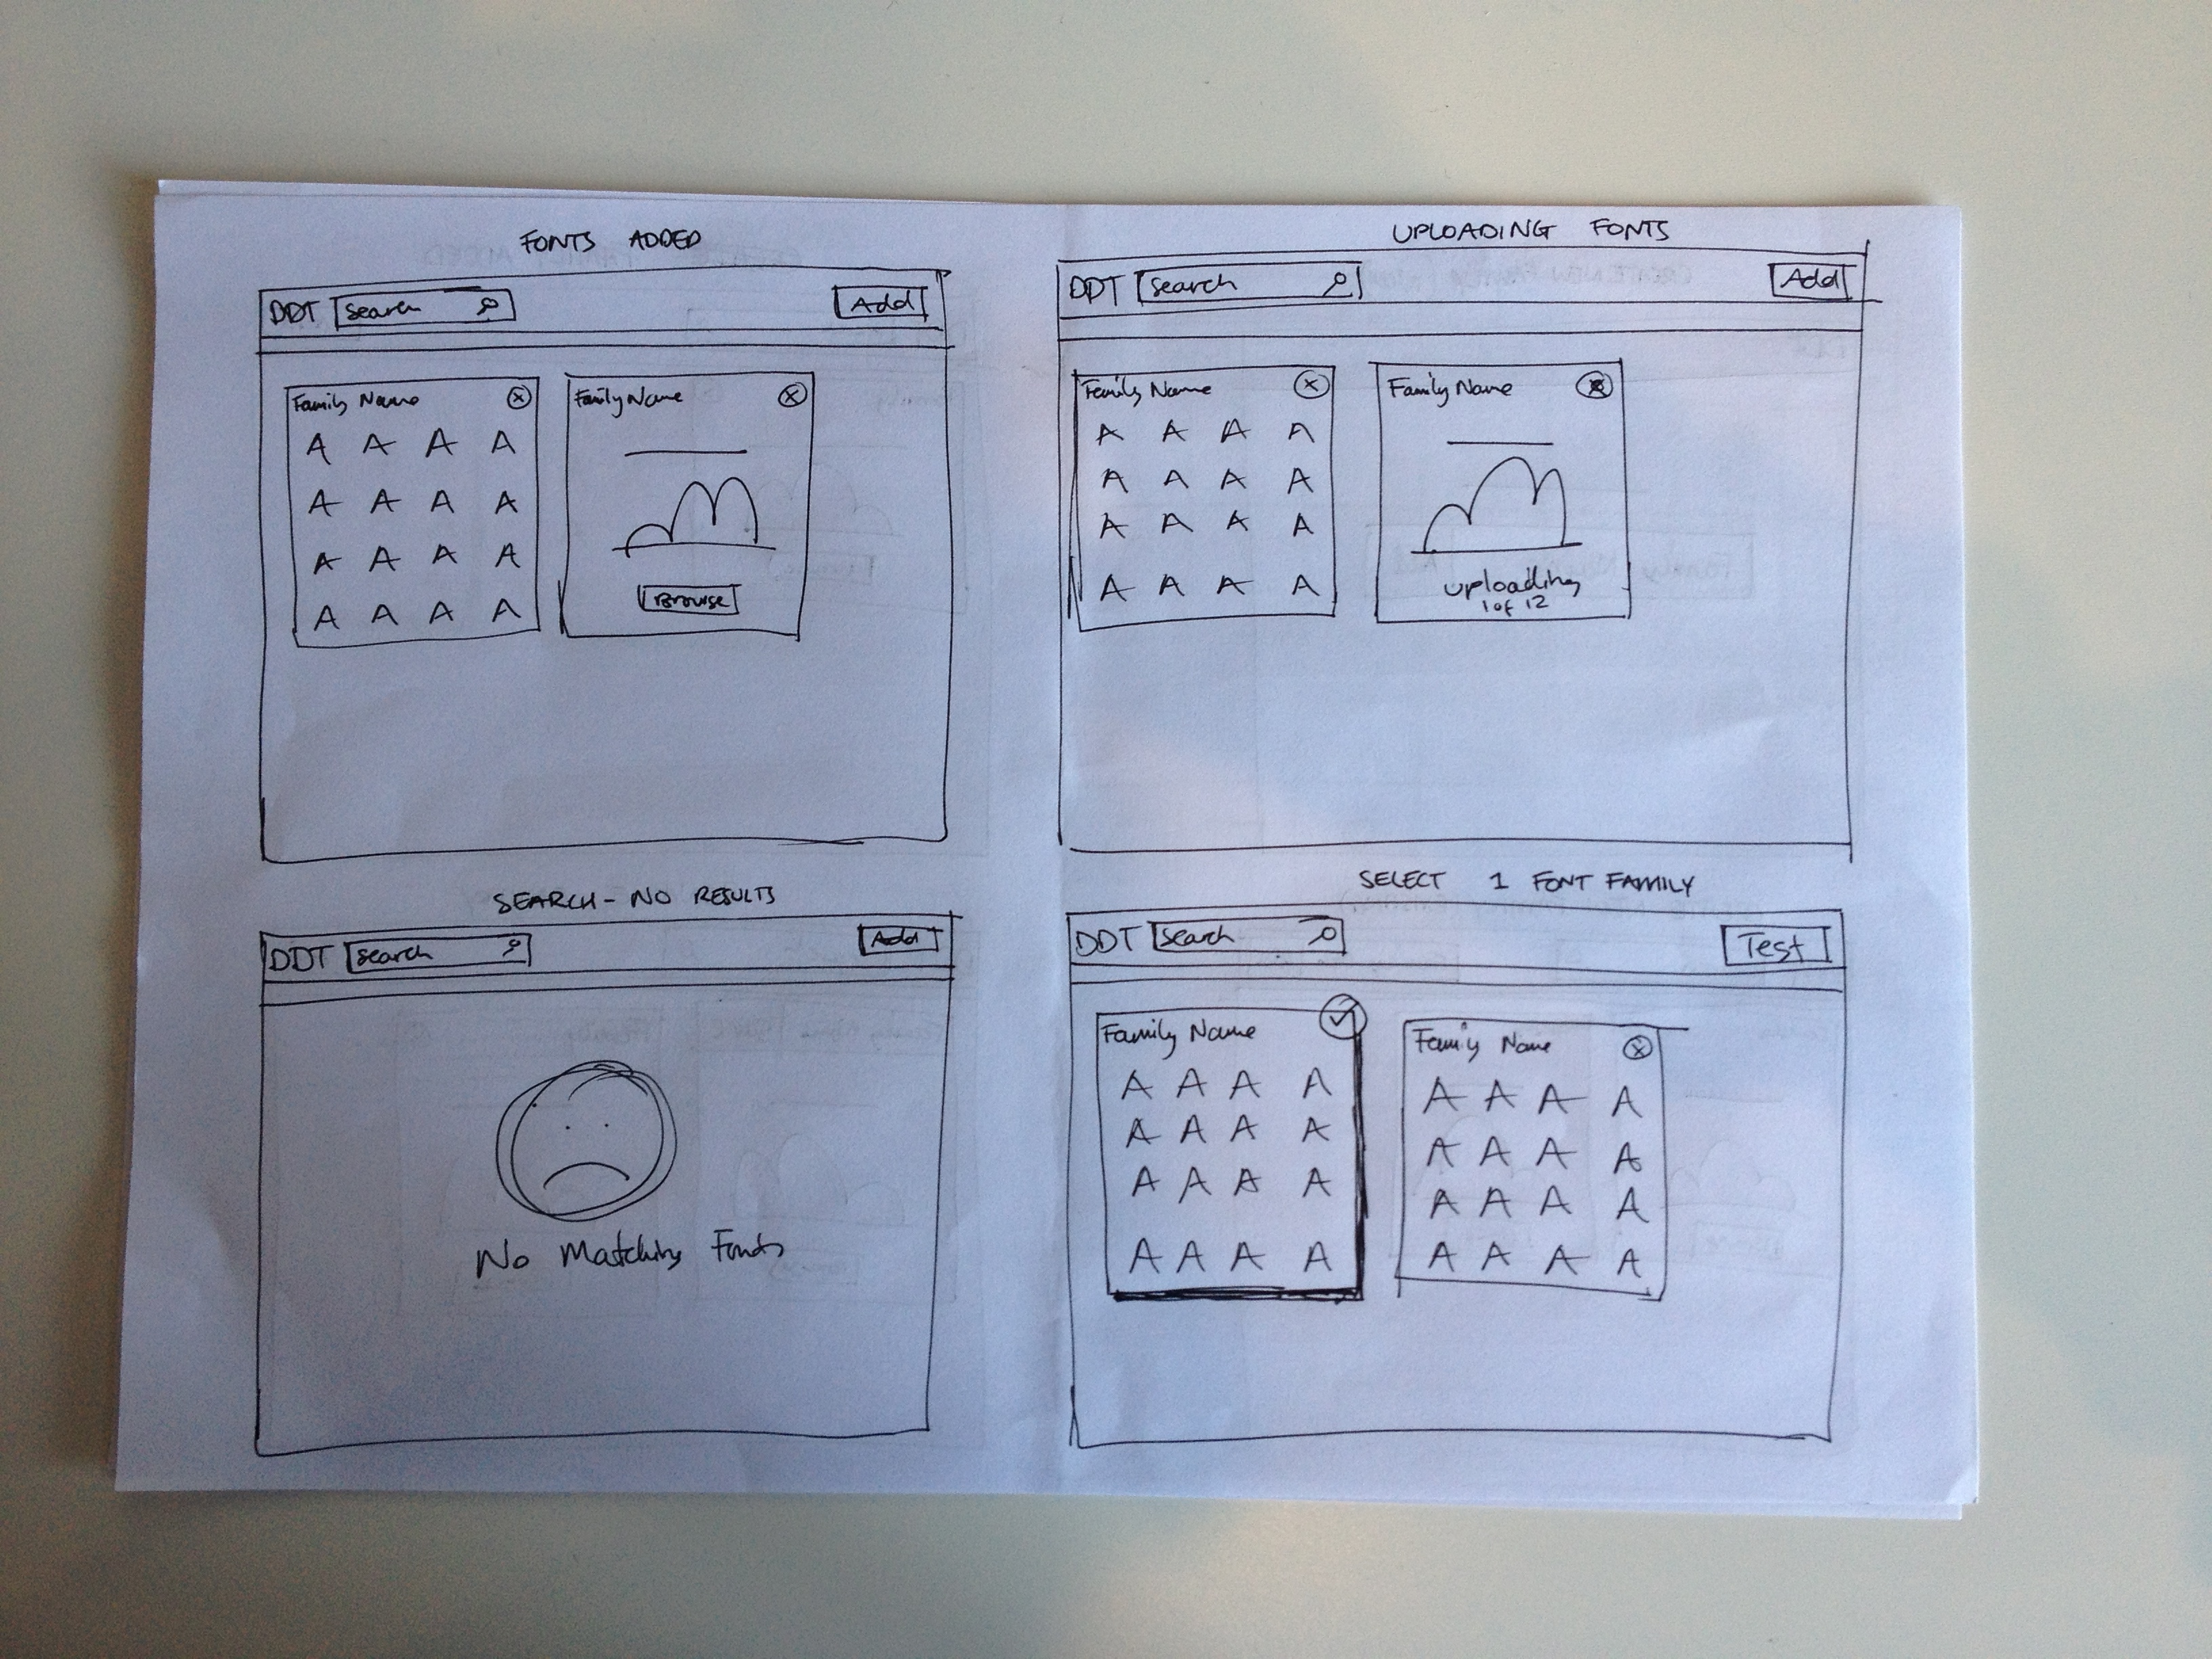 FONTS ADDED
DDT Search Add
Family Name
A A A A
A A A A
A A A A
A A A A
Family Name
Browse
UPLOADING FONTS
DDT Search Add
Family Name
A A A A
A A A A
A A A A
A A A A
Family Name
uploading
1 of 12
SEARCH - NO RESULTS
DDT Search Add
No Matching Fonts
SELECT 1 FONT FAMILY
DDT Search Test
Family Name
A A A A
A A A A
A A A A
A A A A
Family Name
A A A A
A A A A
A A A A
A A A A